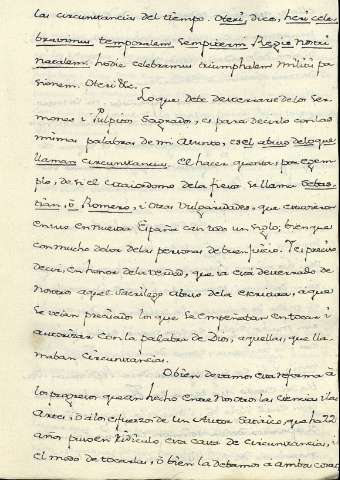 las circunstancias del tiempo. Oteri, dice, heri cele-
bravimus temporalem Sempiterni Regis nostri
natalem, hodie celebramus triumphalem militis pa-
sionem. Oteri &c.
Lo que debe desterrarse de los Ser-
mones i Pulpitos Sagrados, es para decirlo con las
mismas palabras de mi Asunto, es el abuso de lo que
llaman circunstancias. El hacer quenta, por exem-
plo, de si el Maiordomo de la fiesta se llama Sebas-
tian, ô Romero, i otras Vulgaridades, que estuvieron
en uso en nuestra España casi todo un Siglo, bien que
con mucho dolor de las personas de buen juicio. I es preciso
decir, en honor de la verdad, que ya está desterrado de
nosotros aquel sacrilego abuso de la escritura, à que
se veian precisados los que se empeñaban en tocar i
autorizar con la palabra de Dios, aquellas, que lla-
maban circunstancias.
O bien devamos esta reforma à
los progresos que an hecho entre nosotros las ciencias i las
Artes, ô à los esfuerzos de un Autor Satirico, que ha 22
años puso en ridiculo esta casta de circunstancias, i
el modo de tocarlas, ô bien la debamos a ambas cosas